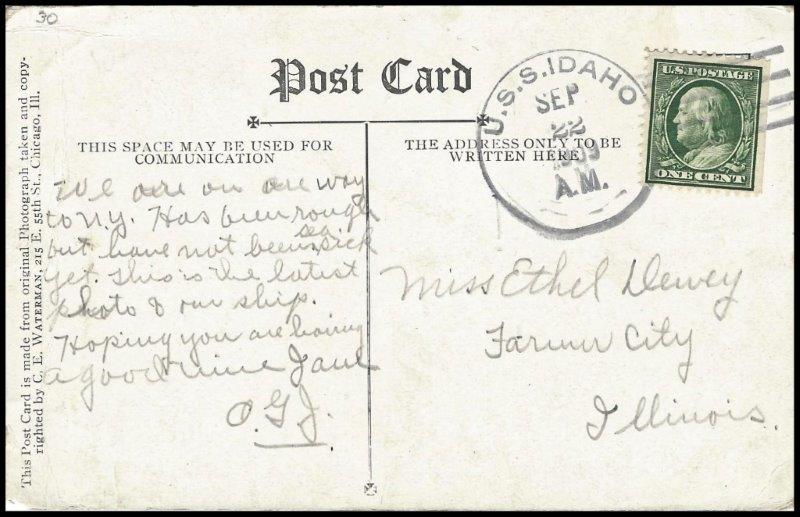 30
Post Card
THIS SPACE MAY BE USED FOR
COMMUNICATION
THE ADDRESS ONLY TO BE
WRITTEN HERE
U.S.S. IDAHO
SEP
22
1909
A.M.
U.S. POSTAGE
ONE CENT
This Post Card is made from original Photograph taken and copy-
righted by C. E. WATERMAN, 215 E. 55th St., Chicago, Ill.
We are on are way
to N.Y. Has been rough
but have not been sea sick
yet. This is the latest
photo of our ship.
Hoping you are having
a good time
O.G.J.
Miss Ethel Dewey
Farmer City
Illinois.